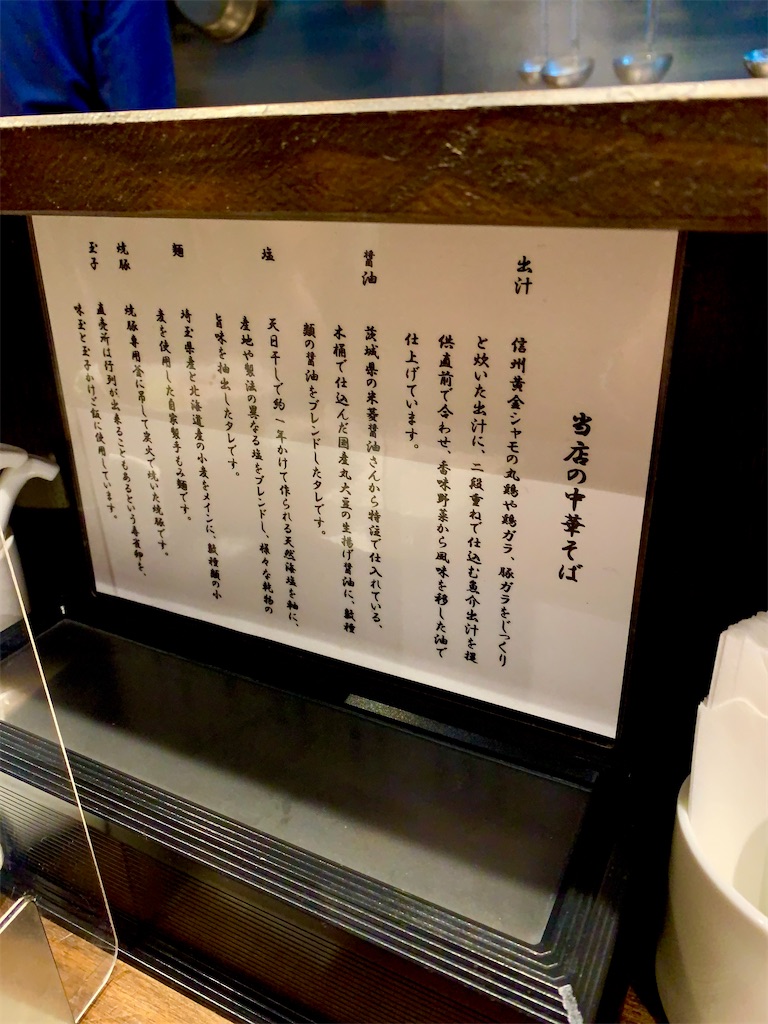 当店の中華そば
出汁
信州黄金シャモの丸鶏や鶏ガラ、豚ガラをじっくり
と炊いた出汁に、二段重ねで仕込む魚介出汁を提
供直前で合わせ、香味野菜から風味を移した油で
仕上げています。
醤油
茨城県の米菱醤油さんから特注で仕入れている、
木桶で仕込んだ国産丸大豆の生揚げ醤油に、数種
類の醤油をブレンドしたタレです。
塩
天日干しで約一年かけて作られる天然海塩を軸に、
産地や製法の異なる塩をブレンドし、様々な乾物の
旨味を抽出したタレです。
麺
埼玉県産と北海道産の小麦をメインに、数種類の小
麦を使用した自家製手もみ麺です。
焼豚
焼豚専用釜に吊して炭火で焼いた焼豚です。
玉子
直売所は行列が出来ることもあるという寿雀卵を、
味玉と玉子かけご飯に使用しています。